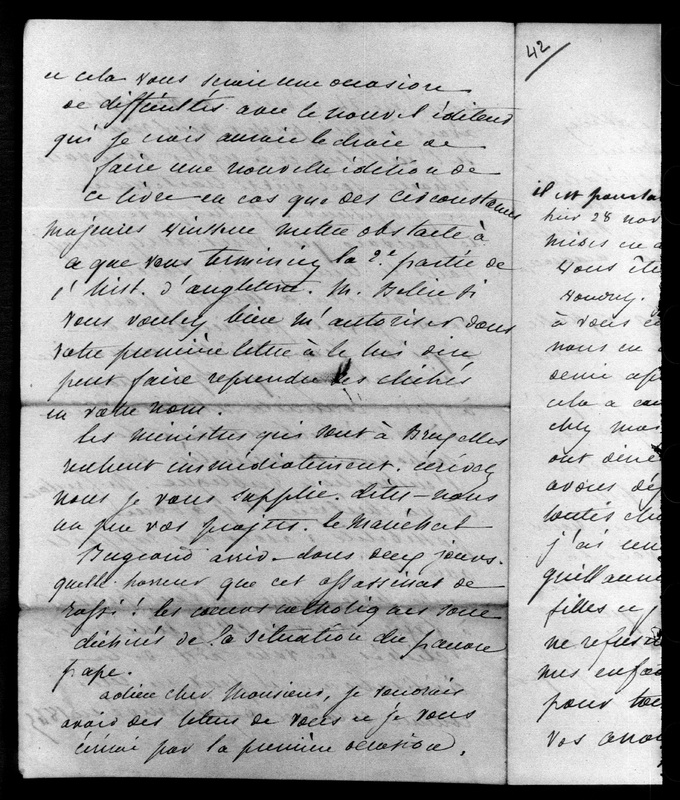 et cela vous serait une occasion
de difficultés avec le nouvel éditeur
qui je crois aurait le choix de
faire une nouvelle édition de
ce livre en cas que des circonstances
majeures vinssent mettre obstacle à
ce que vous terminiez la 2e partie de
l'hist. d'angleterre. M. Belin si
vous voulez bien m'autoriser dans
votre première lettre à le lui dire
peut faire reprendre les clichés
en votre nom.
les ministres qui sont à Bruxelles
rentrent immédiatement. écrivez
nous je vous supplie. dites-nous
un peu vos projets. le Maréchal
Bugeaud arrive dans deux jours.
quelle horreur que cet assassinat de
rossi! les coeurs catholiques sont
déchirés de la situation du pauvre
pape.
adieu cher Monsieur, je voudrais
avoir des lettres de vous et je vous
écrirai par la première occasion.
42
il est pourta
hier 28 nov
mises en
vous ête
voudrez.
à vous
nous en
denie
cela a
chez
ont dîné
avons
toutes
j'ai
guillaume
filles
ne refus
mes enfa
pour
vos